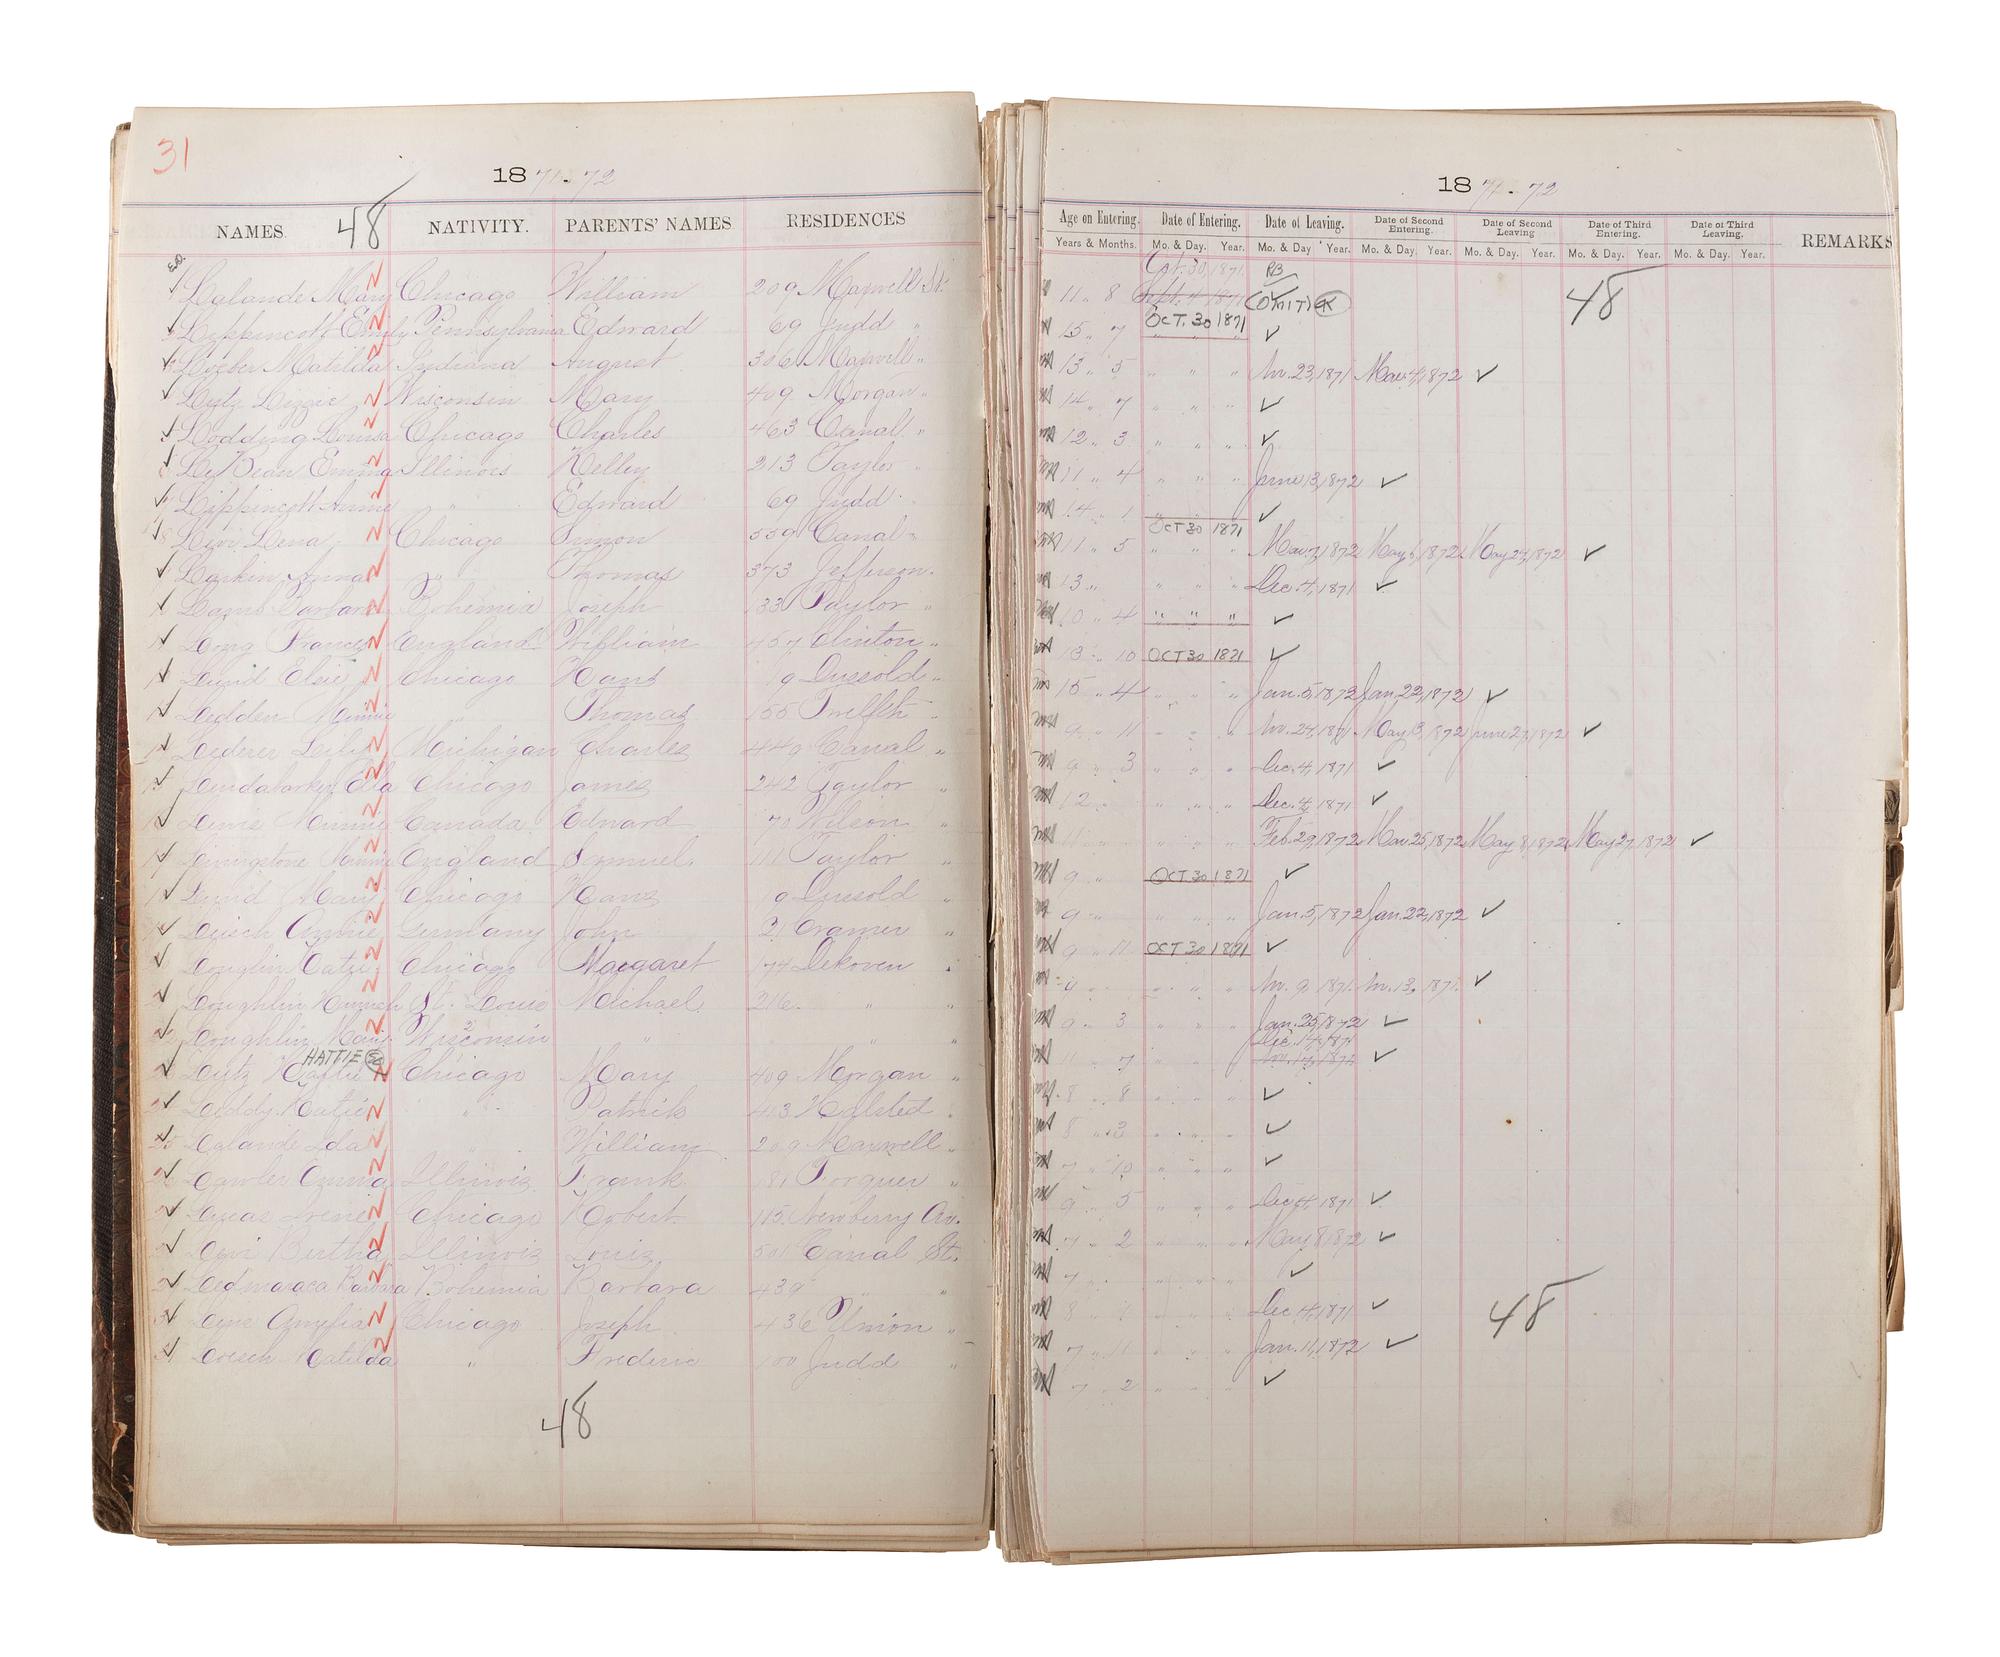 31
1871-72
NAMES. 48 NATIVITY. PARENTS' NAMES RESIDENCES
E.O.
Lalande Mary Chicago William 209 Maxwell St.
Lippincott Emily Pennsylvania Edward 69 Judd "
Loeber Matilda Indiana August 306 Maxwell "
Lutz Lizzie Wisconsin Mary 409 Morgan "
Lodding Louisa Chicago Charles 463 Canal "
Le Bean Emma Illinois Kelley 213 Taylor "
Lippincott Annie " Edward 69 Judd "
Levi Lena Chicago Simon 559 Canal "
Larkin Anna " Thomas 373 Jefferson "
Lamb Barbara Bohemia Joseph 133 Taylor "
Long Frances England William 457 Clinton "
Lund Elsie Chicago Hans 9 Dussold "
Ledden Minnie " Thomas 155 Twelfth "
Lederer Lilly Michigan Charles 440 Canal "
Ella Chicago James 242 Taylor "
Lewis Minnie Canada Edward 70 Wilson "
Livingstone Minnie England Samuel 111 Taylor "
Lund Mary Chicago Hans 9 Dussold "
Annie Germany John 21 Cramer "
Loughlin Katie Chicago Margaret 174 Dekoven "
Loughlin Hannah St. Louis Michael 216 " "
Loughlin Mary Wisconsin " " "
HATTIE
Lutz Hattie Chicago Mary 409 Morgan "
Leddy Katie " Patrick 413 Halsted "
Lalande Ida " William 209 Maxwell "
Lawler Emma Illinois Frank 181 Forquer "
Lucas Irene Chicago Robert 115 Newberry Av.
Levi Bertha Illinois Louis 501 Canal St.
Barbara Bohemia Barbara 439 " "
Lyne Amelia Chicago Joseph 436 Union "
Loesch Matilda " Frederic 100 Judd "
48
1871-72
Age on Entering. Date of Entering. Date of Leaving. Date of Second Entering. Date of Second Leaving Date of Third Entering. Date of Third Leaving. REMARKS
Years & Months. Mo. & Day. Year. Mo. & Day Year. Mo. & Day. Year. Mo. & Day. Year. Mo. & Day. Year. Mo. & Day. Year.
Oct. 30, 1871 RB
11 " 8 Sept. 4, 1871 (OMIT) 48
OCT. 30 1871
15 " 7 " " "
13 " 5 " " " Nov. 23, 1871 Mar. 4, 1872
14 " 7 " " "
12 " 3 " " "
11 " 4 " " " June 13, 1872
14 " 1 " " "
OCT 30 1871
11 " 5 " " " Mar. 7, 1872 May 6, 1872 May 27, 1872
13 " " " " Dec. 4, 1871
10 " 4 " " "
13 " 10 OCT 30 1871
15 " 4 " " " Jan. 5, 1872 Jan. 22, 1872
9 " 11 " " " Nov. 27, 1871 May 13, 1872 June 27, 1872
9 " 3 " " " Dec. 4, 1871
12 " " " " Dec. 4, 1871
11 " " " " Feb. 29, 1872 Mar. 25, 1872 May 8, 1872 May 27, 1872
9 " OCT 30 1871
9 " " " " Jan. 5, 1872 Jan. 22, 1872
9 " 11 OCT 30 1871
9 " " " Nov. 9, 1871 Nov. 13, 1871
9 " 3 " " " Jan. 25, 1872
Dec. 14, 1871
11 " 7 " " " Nov. 17, 1871
8 " 8 " " "
8 " 3 " " "
7 " 10 " " "
9 " 5 " " " Dec. 4, 1871
7 " 2 " " " May 8, 1872
7 " " " "
8 " 4 " " " Dec. 4, 1871 48
7 " 11 " " " Jan. 11, 1872
7 " 2 " " "